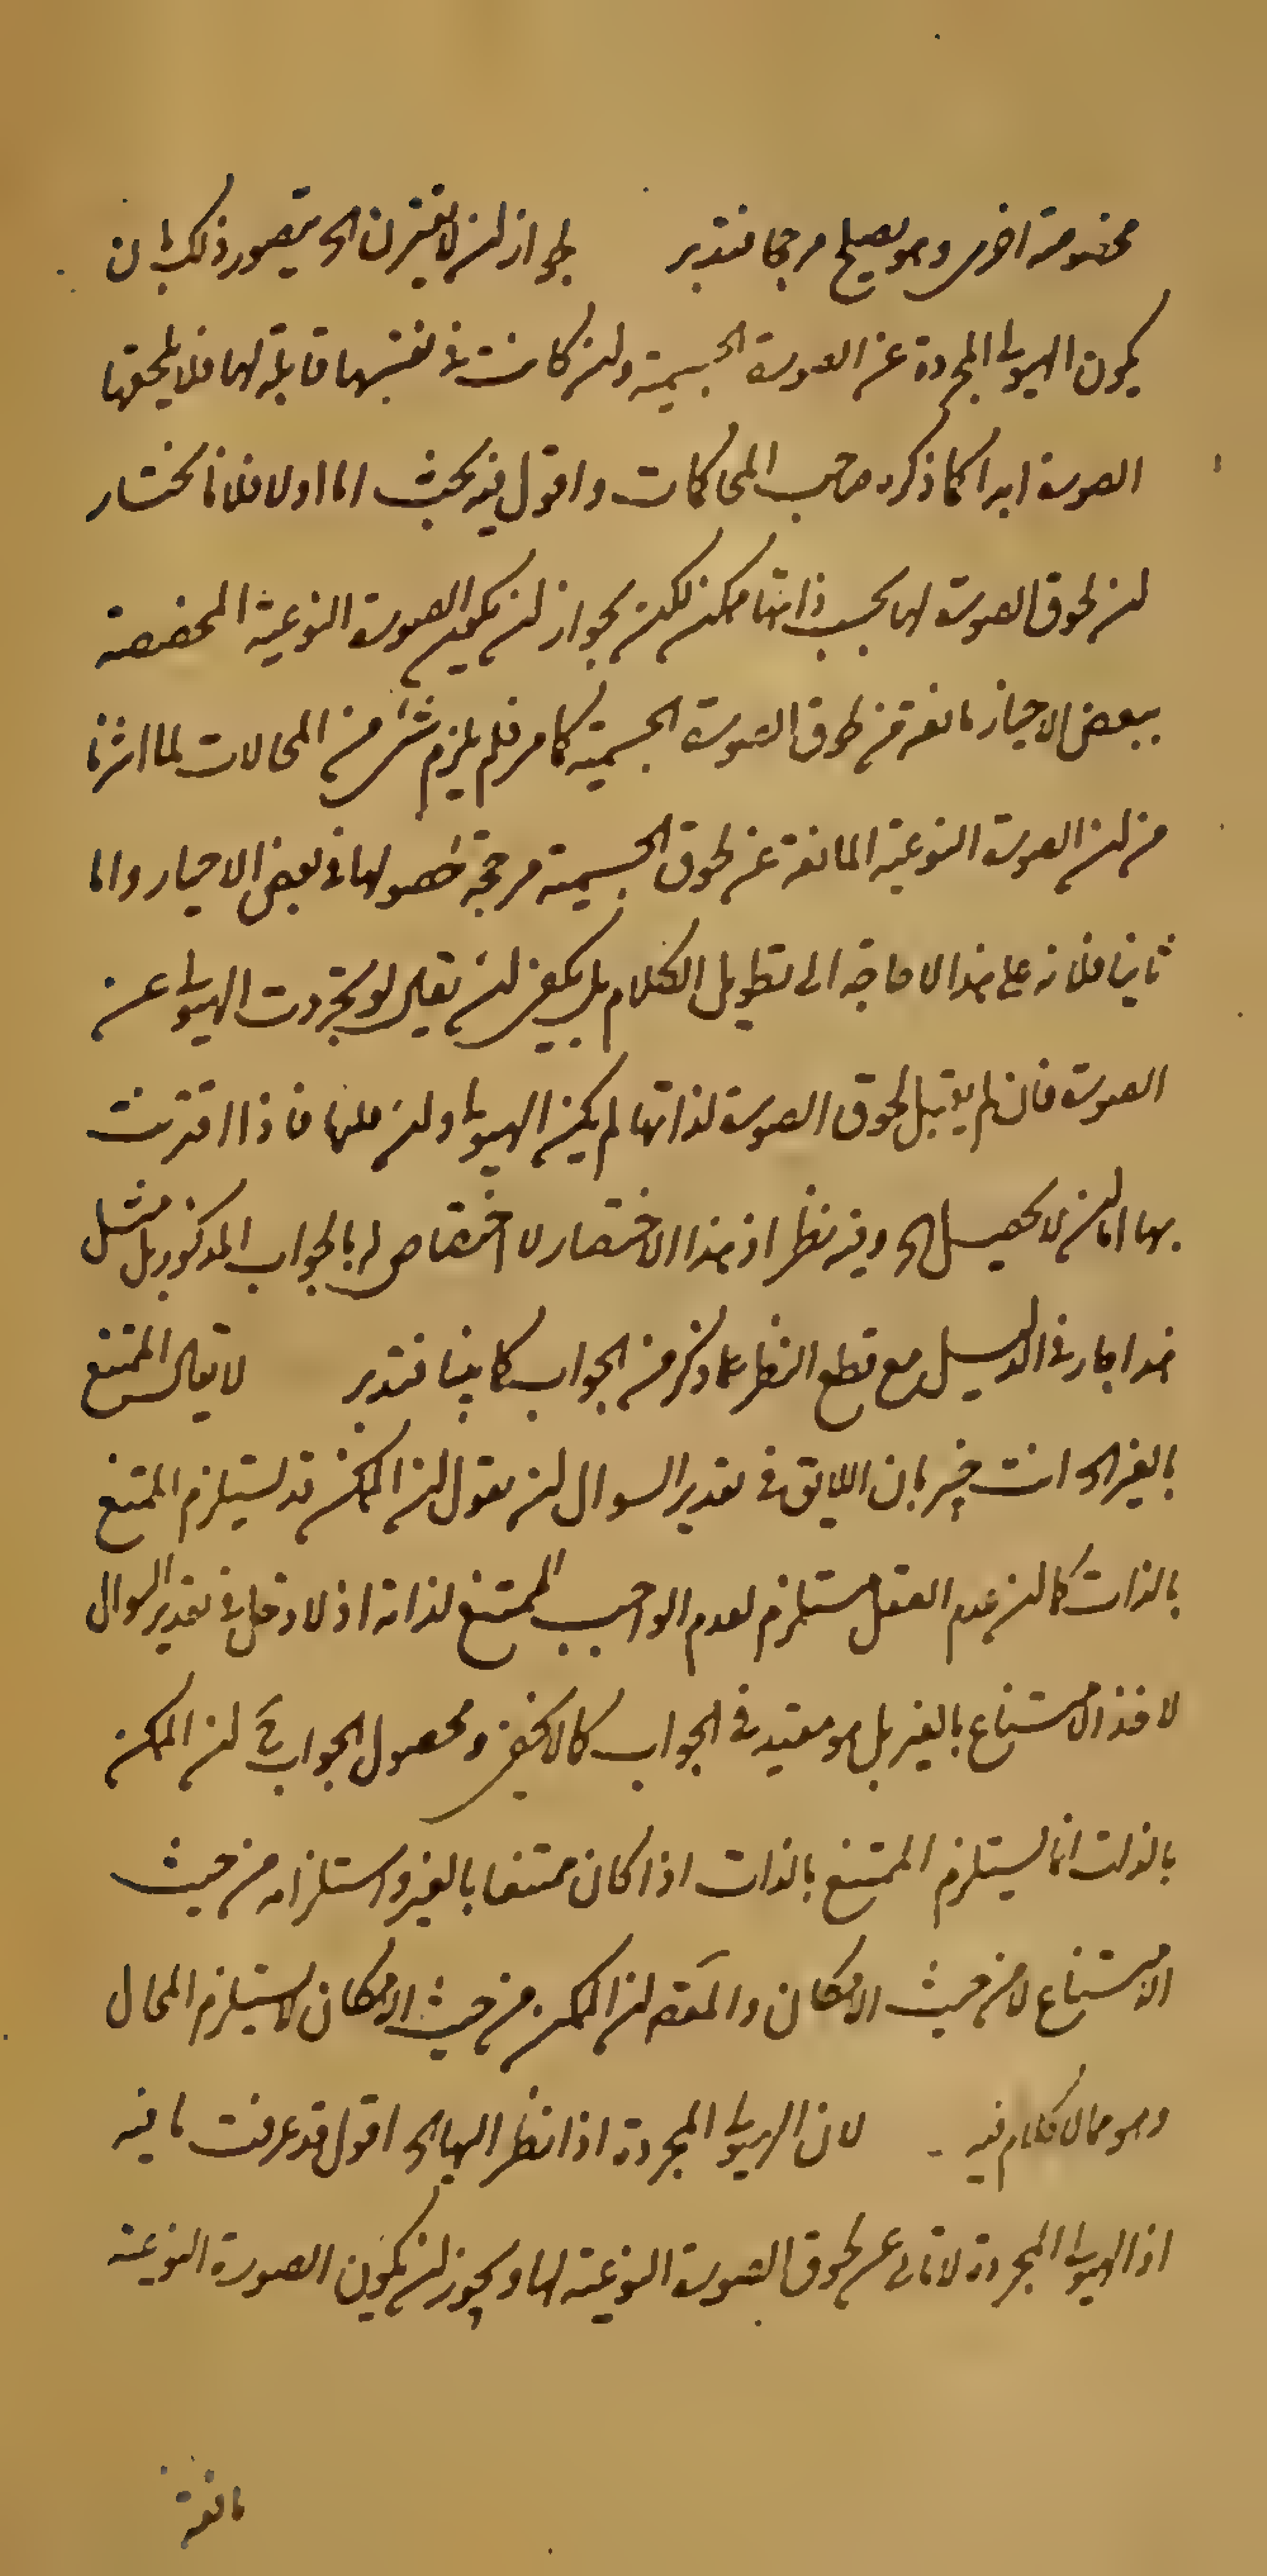 مخصوصة اخرى وهو يصلح مرجحا فتدبر لجواز ان لا يقترن الخ يتصور ذلك بان
يكون الهيولى المجردة عن الصورة الجسمية وان كانت في نفسها قابلة لها فلا يلحقها
الصورة ابدا كما ذكره صاحب المحاكمات واقول فيه بحث اما اولا فلانا نختار
ان لحوق الصورة لها بحسب ذاتها ممكن لكن يجوز ان يكون الصورة النوعية المخصصة
ببعض الاحياز مانعة من لحوق الصورة الجسمية كما مر فلم يلزم شيء من المحالات لما اشرنا
من ان الصورة النوعية المانعة عن لحوق الجسمية مرجحة لحصولها في بعض الاحياز واما
ثانيا فلانه على هذا لا حاجة الى تطويل الكلام بل يكفي ان يقال لو تجردت الهيولى عن
الصورة فان لم يقبل لحوق الصورة لذاتها لم يكن الهيولى وان قبلها فاذا اقترنت
بها اما ان لا يحصل الخ وفيه نظر اذ هذا الاختصار لا اختصاص له بالجواب المذكور بل مثل
هذا جار في الدليل مع قطع النظر عما ذكر من الجواب كما بينا فتدبر لا يقال الممتنع
بالغير الخ انت خبير بان اللايق في تقدير السوال ان يقول ان الممكن قد يستلزم الممتنع
بالذات كما ان عدم العقل مستلزم لعدم الواجب الممتنع لذاته اذ لا دخل في تقدير السوال
لاخذ الامتناع بالغير بل هو مفيد في الجواب كما لا يخفى ومحصول الجواب ح ان الممكن
بالذات انما يستلزم الممتنع بالذات اذا كان ممتنعا بالغير واستلزامه من حيث
الامتناع لا من حيث الامكان والمقصـ ان الممكن من حيث الامكان لا يستلزم المحال
وهو مما لا كلام فيه لان الهيولى المجردة اذا نظر اليها الخ اقول قد عرفت ما فيه
اذ الهيولى المجردة لا تابى عن لحوق الصورة النوعية لها ويجوز ان يكون الصورة النوعية
مانعة